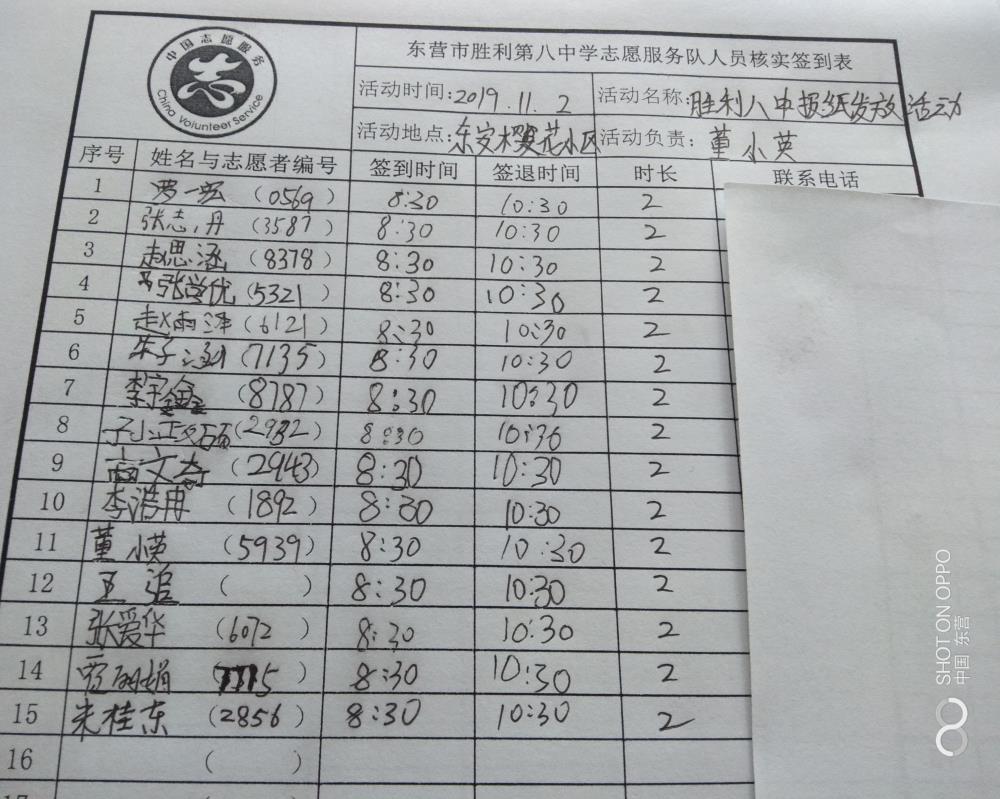 中国志愿服务
China Volunteer Service
东营市胜利第八中学志愿服务队人员核实签到表
活动时间:2019.11.2 活动名称:胜利八中报纸发放活动
活动地点:东安樱花小区 活动负责:董小英
序号 姓名与志愿者编号 签到时间 签退时间 时长 联系电话
1 贾一宸 (0569) 8:30 10:30 2
2 张志丹 (3587) 8:30 10:30 2
3 赵思涵 (8378) 8:30 10:30 2
4 张学优 (5321) 8:30 10:30 2
5 赵雨泽 (6121) 8:30 10:30 2
6 朱子涵 (7135) 8:30 10:30 2
7 李宇鑫 (8787) 8:30 10:30 2
8 (2982) 8:30 10:30 2
9 高文奇 (2943) 8:30 10:30 2
10 李浩冉 (1892) 8:30 10:30 2
11 董小英 (5939) 8:30 10:30 2
12 王 ( ) 8:30 10:30 2
13 张爱华 (6072) 8:30 10:30 2
14 贾丽娟 (7115) 8:30 10:30 2
15 朱桂东 (2856) 8:30 10:30 2
16 ( )
17
SHOT ON OPPO
中国 东营